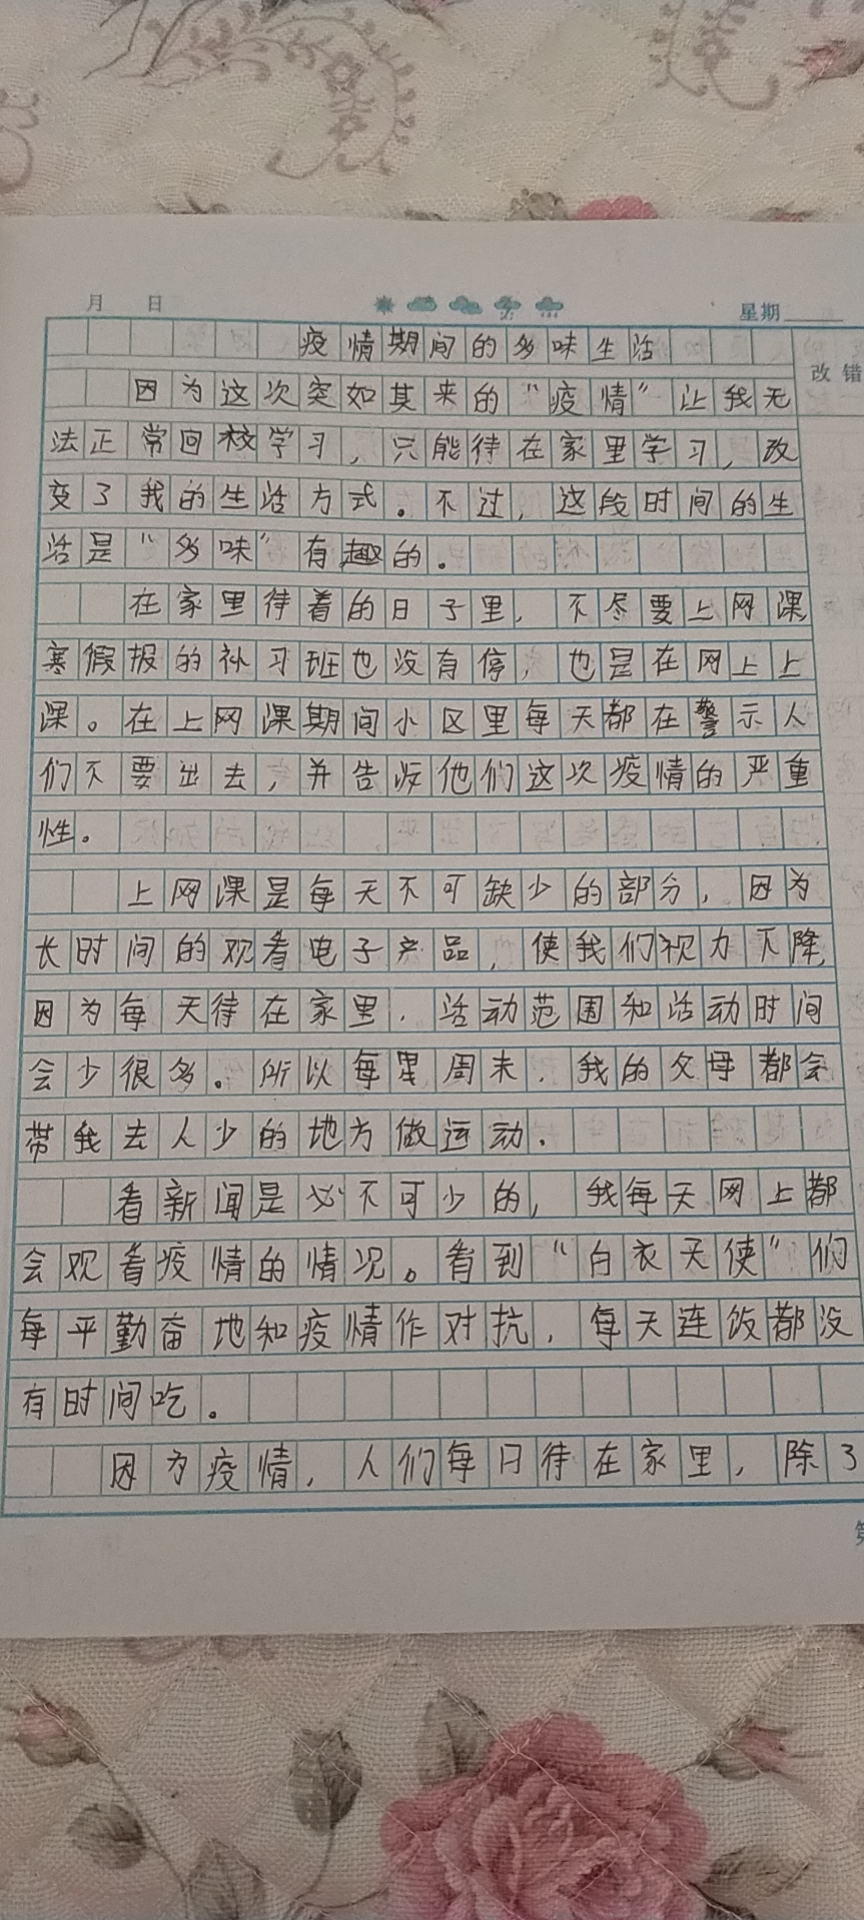 月 日 星期
疫情期间的多味生活
改错
因为这次突如其来的“疫情”让我无
法正常回校学习，只能待在家里学习，改
变了我的生活方式。不过，这段时间的生
活是“多味”有趣的。
在家里待着的日子里，不尽要上网课
寒假报的补习班也没有停，也是在网上上
课。在上网课期间小区里每天都在警示人
们不要出去，并告诉他们这次疫情的严重
性。
上网课是每天不可缺少的部分，因为
长时间的观看电子产品，使我们视力下降，
因为每天待在家里，活动范围和活动时间
会少很多。所以每星周末，我的父母都会
带我去人少的地方做运动.
看新闻是必不可少的，我每天网上都
会观看疫情的情况。看到“白衣天使”们
每平勤奋地和疫情作对抗，每天连饭都没
有时间吃。
因为疫情，人们每日待在家里，除了
第